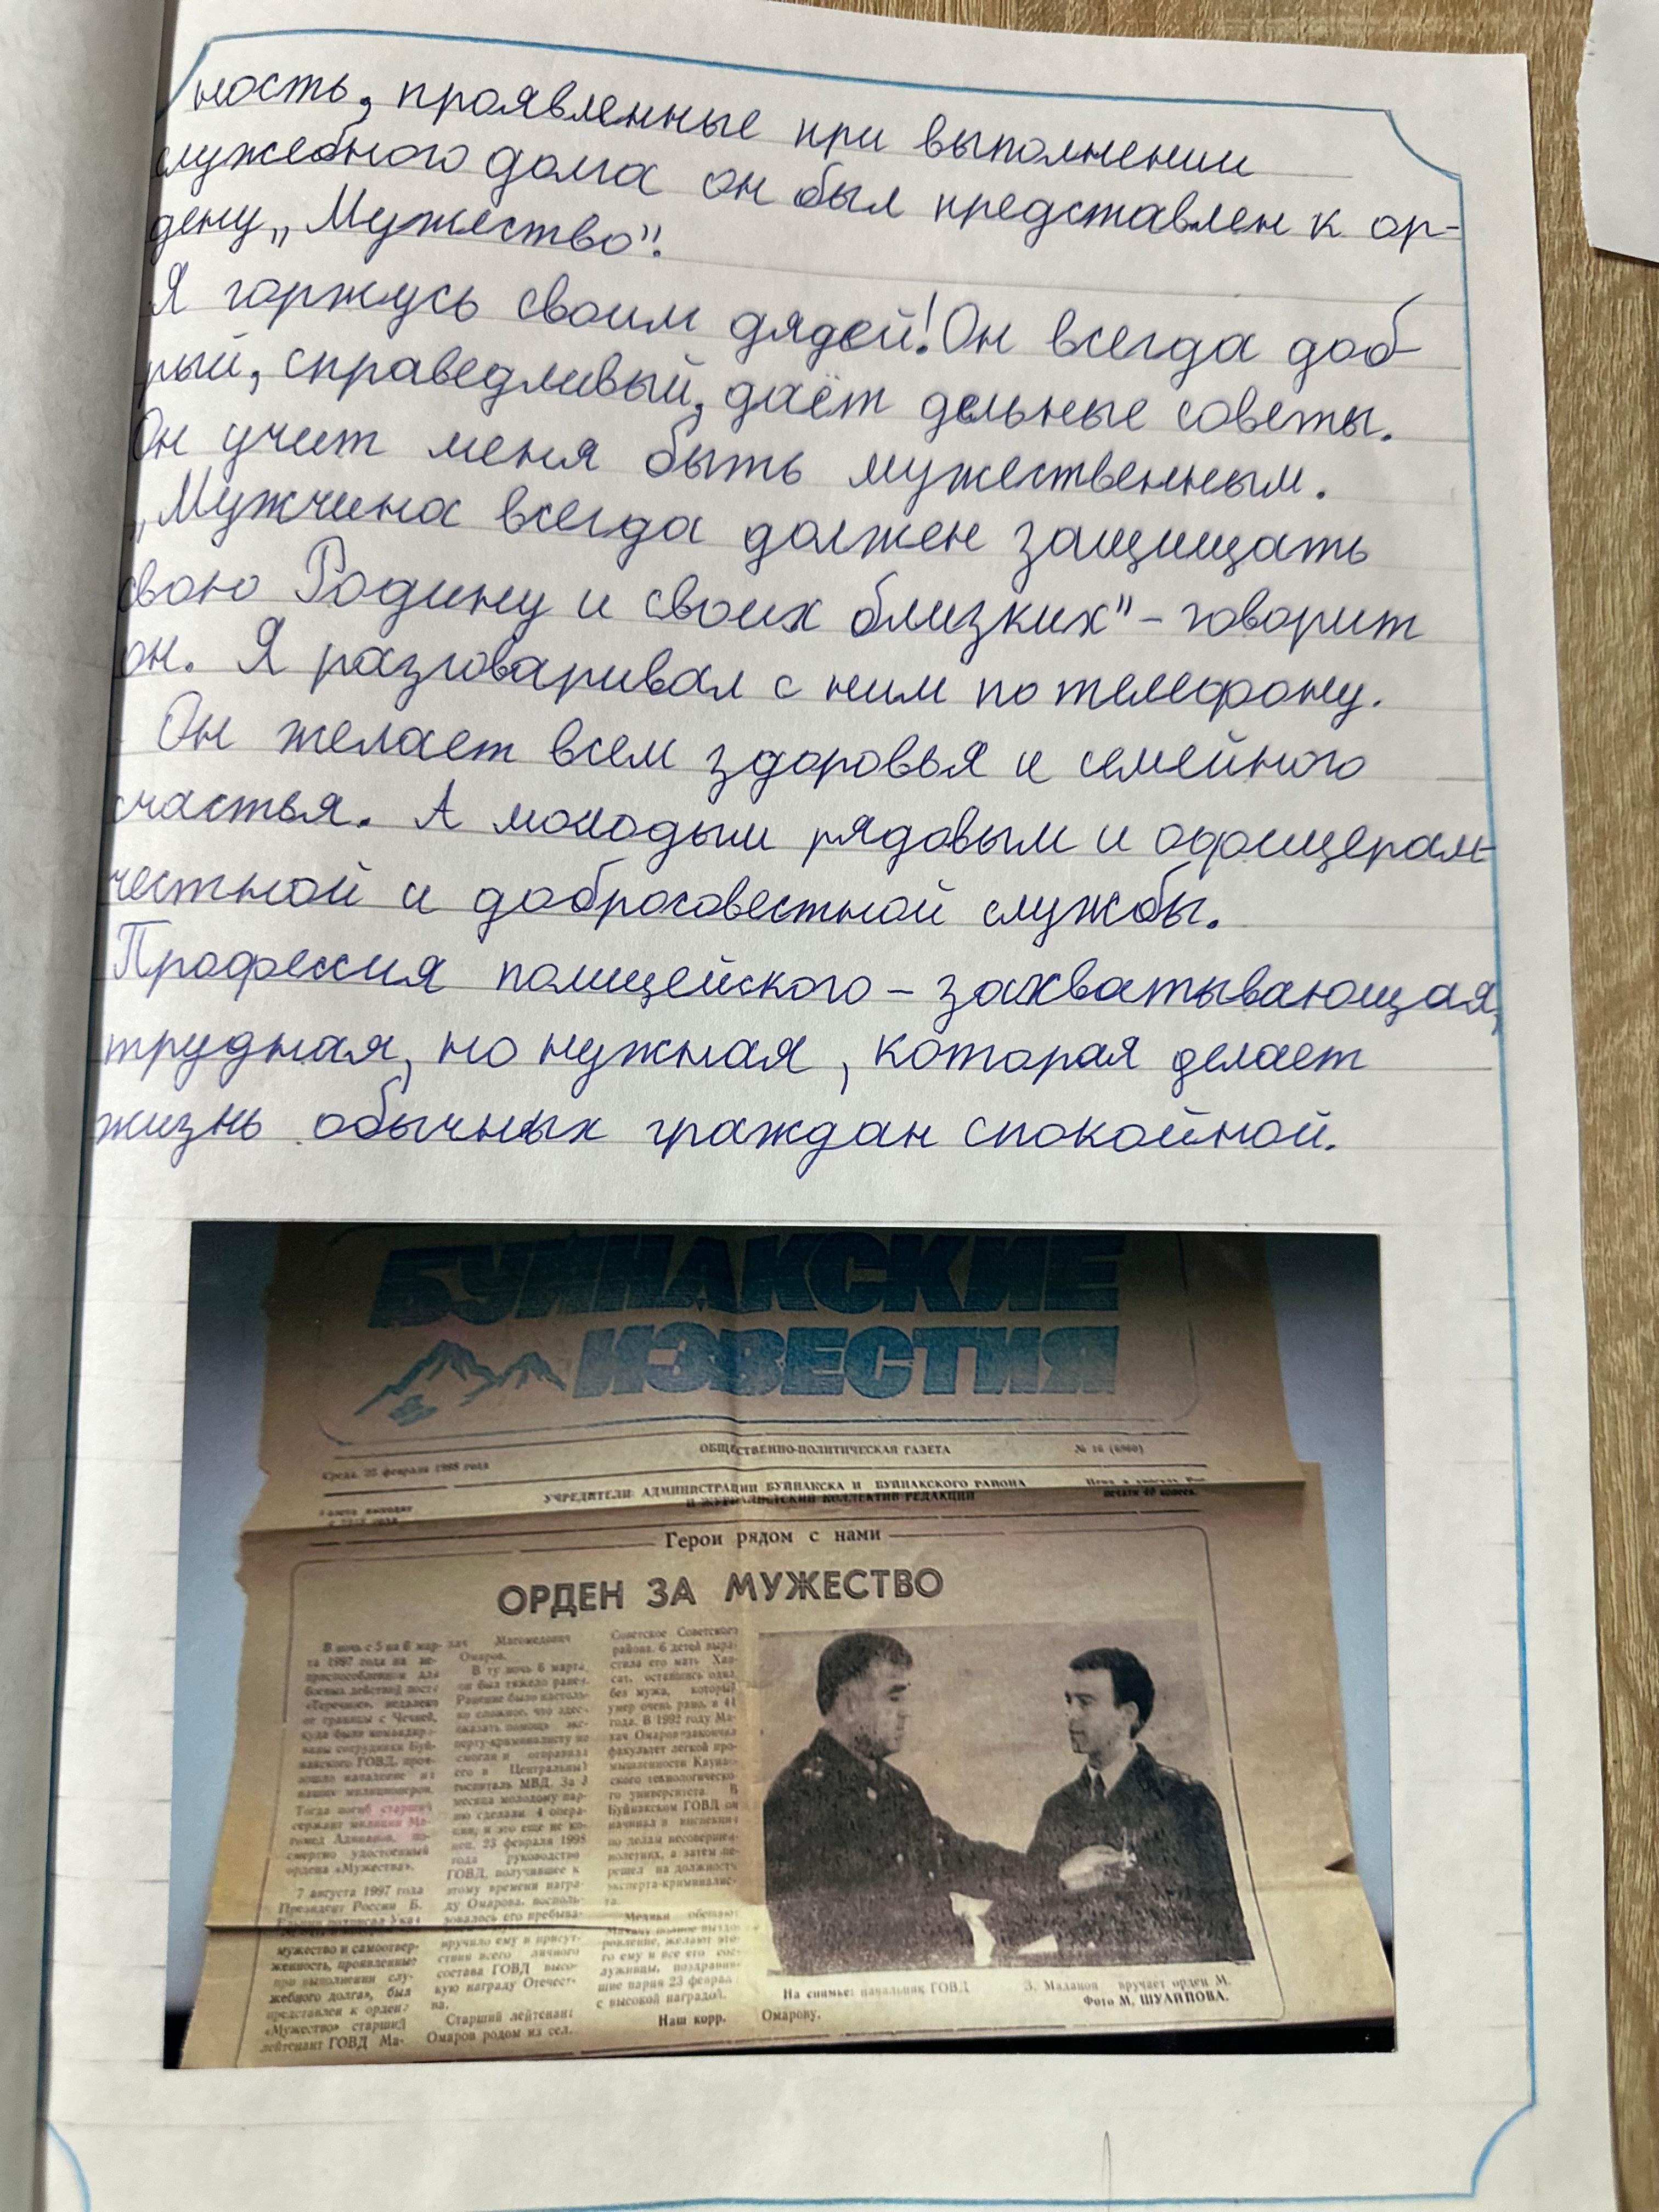 ность, проявленные при выполнении
служебного долга он был представлен к ор-
дену „Мужество".
Я горжусь своим дядей! Он всегда доб
рый, справедливый, даёт дельные советы.
Он учит меня быть мужественным.
„Мужчина всегда должен защищать
свою Родину и своих близких" – говорит
он. Я разговаривал с ним по телефону.
Он желает всем здоровья и семейного
счастья. А молодым рядовым и офицерам-
честной и добросовестной службы.
Профессия полицейского – захватывающая,
трудная, но нужная, которая делает
жизнь обычных граждан спокойной.
БУЙНАКСКИЕ
ИЗВЕСТИЯ
ОБЩЕСТВЕННО-ПОЛИТИЧЕСКАЯ ГАЗЕТА
№ 16 (6960)
Среда, 25 февраля 1998 года
УЧРЕДИТЕЛИ: АДМИНИСТРАЦИИ БУЙНАКСКА И БУЙНАКСКОГО РАЙОНА
И ЖУРНАЛИСТСКИЙ КОЛЛЕКТИВ РЕДАКЦИИ
Герои рядом с нами
ОРДЕН ЗА МУЖЕСТВО
В ночь с 5 на 6 мар-
та 1997 года на не-
приспособленном для
боевых действий посту
«Теречное», недалеко
от границы с Чечней,
куда были командиро-
ваны сотрудники Буй-
накского ГОВД, прои-
зошло нападение на
наших милиционеров.
Тогда погиб старший
сержант милиции Ма-
гомед
смертно удостоенный
ордена «Мужества».
7 августа 1997 года
Президент России Б.
Ельцин подписал Указ
мужество и самоотвер-
женность, проявленные
при выполнении слу-
жебного долга», был
представлен к ордену
«Мужество» старший
лейтенант ГОВД Ма-
хач Магомедович
Омаров.
В ту ночь 6 марта,
он был тяжело ранен.
Ранение было настоль-
ко сложное, что здесь
оказать помощь экс-
перту-криминалисту не
смогли и отправили
его в Центральный
госпиталь МВД. За 3
месяца молодому пар-
ню сделали 4 опера-
ции, и это еще не ко-
нец. 23 февраля 1998
года руководство
ГОВД, получившее к
этому времени награ-
ду Омарова, восполь-
зовалось его пребыва-
вручило ему в присут-
ствии всего личного
состава ГОВД высо-
кую награду Отечест-
ва.
Старший лейтенант
Омаров родом из сел.
Советское Советского
района. 6 детей выра-
стила его мать
сат, оставшись одна,
без мужа, который
умер очень рано, в 44
года. В 1992 году Ма-
хач Омаров закончил
факультет легкой про-
мышленности
ского технологическо-
го университета. В
Буйнакском ГОВД он
начинал в инспекции
по делам несовершен-
нолетних, а затем пе-
решел на должность
эксперта-криминалис-
та.
Медики обещают
Махачу полное выздо-
ровление, желают это-
го ему и все его сос-
луживцы, поздравив-
шие парня 23 февраля
с высокой наградой.
Наш корр.
На снимке: начальник ГОВД З. Маданов вручает орден М.
Омарову.
Фото М. ШУАЙПОВА.